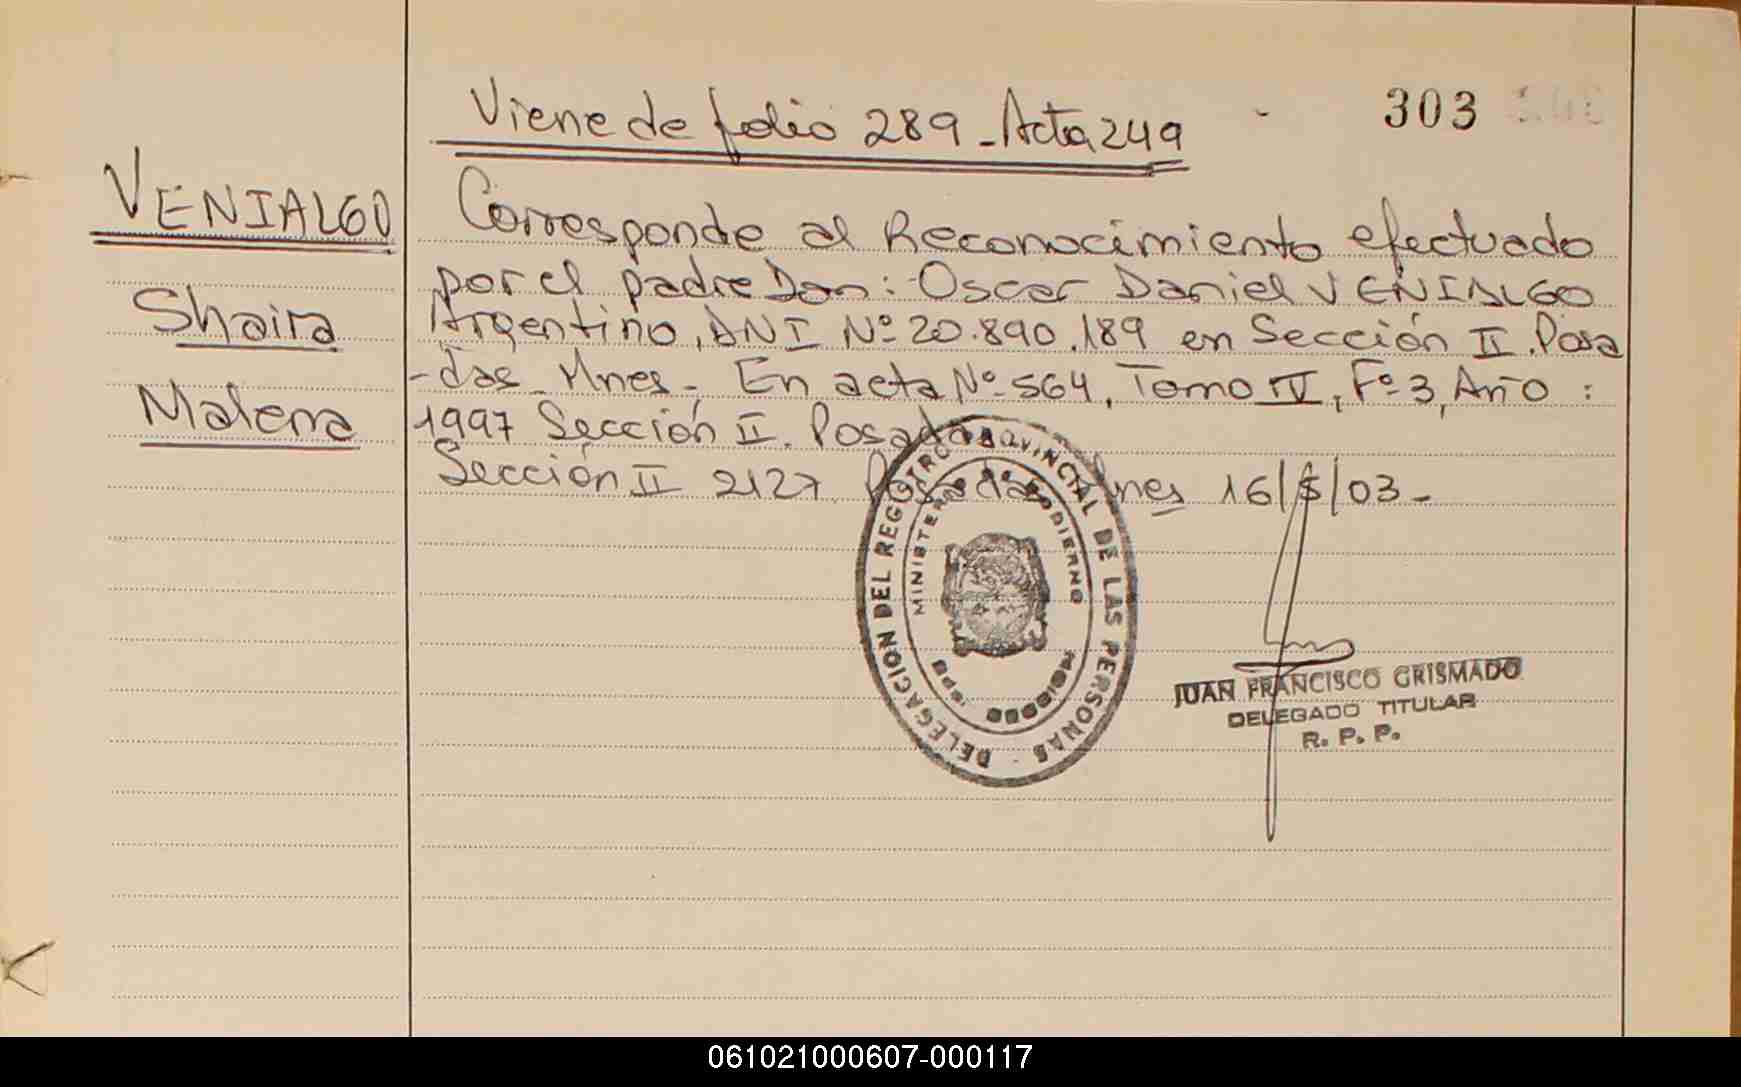 Viene de folio 289 - Acta 249
303
VENIALGO
Shaira
Malena
Corresponde al Reconocimiento efectuado
por el padre Don: Oscar Daniel VENIALGO
Argentino, DNI Nº 20.890.189 en Sección II. Posa
-das - Mnes -, En acta Nº 564, Tomo IV, Fº 3, Año :
1997 Sección II. Posadas
Sección II 2127 Posadas Mnes 16/5/03 -
DELEGACION DEL REGISTRO PROVINCIAL DE LAS PERSONAS
MINISTERIO DE GOBIERNO
JUAN FRANCISCO GRISMADO
DELEGADO TITULAR
R. P. P.
061021000607-000117